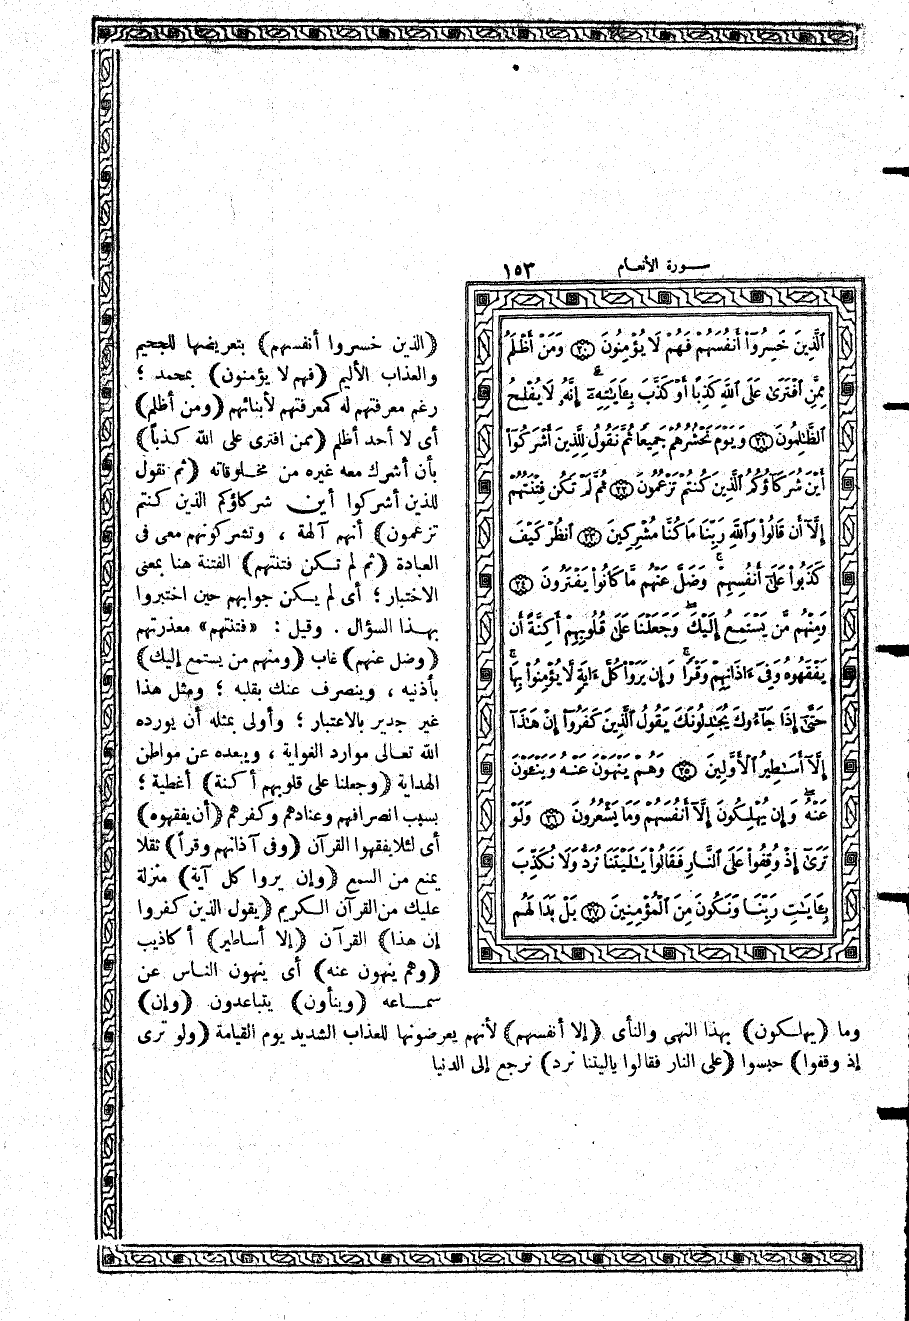 سورة الأنعام ١٥٣
ٱلَّذِينَ خَسِرُوٓا۟ أَنفُسَهُمْ فَهُمْ لَا يُؤْمِنُونَ ٢٠ وَمَنْ أَظْلَمُ
مِمَّنِ ٱفْتَرَىٰ عَلَى ٱللَّهِ كَذِبًا أَوْ كَذَّبَ بِـَٔايَـٰتِهِۦٓ إِنَّهُۥ لَا يُفْلِحُ
ٱلظَّـٰلِمُونَ ٢١ وَيَوْمَ نَحْشُرُهُمْ جَمِيعًا ثُمَّ نَقُولُ لِلَّذِينَ أَشْرَكُوٓا۟
أَيْنَ شُرَكَآؤُكُمُ ٱلَّذِينَ كُنتُمْ تَزْعُمُونَ ٢٢ ثُمَّ لَمْ تَكُن فِتْنَتُهُمْ
إِلَّآ أَن قَالُوا۟ وَٱللَّهِ رَبِّنَا مَا كُنَّا مُشْرِكِينَ ٢٣ ٱنظُرْ كَيْفَ
كَذَبُوا۟ عَلَىٰٓ أَنفُسِهِمْ ۚ وَضَلَّ عَنْهُم مَّا كَانُوا۟ يَفْتَرُونَ ٢٤
وَمِنْهُم مَّن يَسْتَمِعُ إِلَيْكَ ۖ وَجَعَلْنَا عَلَىٰ قُلُوبِهِمْ أَكِنَّةً أَن
يَفْقَهُوهُ وَفِىٓ ءَاذَانِهِمْ وَقْرًا ۚ وَإِن يَرَوْا۟ كُلَّ ءَايَةٍ لَّا يُؤْمِنُوا۟ بِهَا ۚ
حَتَّىٰٓ إِذَا جَآءُوكَ يُجَـٰدِلُونَكَ يَقُولُ ٱلَّذِينَ كَفَرُوٓا۟ إِنْ هَـٰذَآ
إِلَّآ أَسَـٰطِيرُ ٱلْأَوَّلِينَ ٢٥ وَهُمْ يَنْهَوْنَ عَنْهُ وَيَنْـَٔوْنَ
عَنْهُ ۖ وَإِن يُهْلِكُونَ إِلَّآ أَنفُسَهُمْ وَمَا يَشْعُرُونَ ٢٦ وَلَوْ
تَرَىٰٓ إِذْ وُقِفُوا۟ عَلَى ٱلنَّارِ فَقَالُوا۟ يَـٰلَيْتَنَا نُرَدُّ وَلَا نُكَذِّبَ
بِـَٔايَـٰتِ رَبِّنَا وَنَكُونَ مِنَ ٱلْمُؤْمِنِينَ ٢٧ بَلْ بَدَا لَهُم
(الذين خسروا أنفسهم) بتعريضها للجحيم
والعذاب الأليم (فهم لا يؤمنون) بمحمد ؛
رغم معرفتهم له كمعرفتهم لأبنائهم (ومن أظلم)
أى لا أحد أظلم (ممن افترى على الله كذباً)
بأن أشرك معه غيره من مخلوقاته (ثم نقول
للذين أشركوا أين شركاؤكم الذين كنتم
تزعمون) أنهم آلهة ، وتشركونهم معى فى
العبادة (ثم لم تكن فتنتهم) الفتنة هنا بمعنى
الاختبار ؛ أى لم يكن جوابهم حين اختبروا
بهذا السؤال . وقيل : «فتنتهم» معذرتهم
(وضل عنهم) غاب (ومنهم من يستمع إليك)
بأذنيه ، وينصرف عنك بقلبه ؛ ومثل هذا
غير جدير بالاعتبار ؛ وأولى بمثله أن يورده
الله تعالى موارد الغواية ، ويبعده عن مواطن
الهداية (وجعلنا على قلوبهم أكنة) أغطية ؛
بسبب انصرافهم وعنادهم وكفرهم (أن يفقهوه)
أى لئلا يفقهوا القرآن (وفى آذانهم وقراً) ثقلا
يمنع من السمع (وإن يروا كل آية) منزلة
عليك من القرآن الكريم (يقول الذين كفروا
إن هذا) القرآن (إلا أساطير) أكاذيب
(وهم ينهون عنه) أى ينهون الناس عن
سماعه (وينأون) يتباعدون (وإن)
وما (يهلكون) بهذا النهى والنأى (إلا أنفسهم) لأنهم يعرضونها للعذاب الشديد يوم القيامة (ولو ترى
إذ وقفوا) حبسوا (على النار فقالوا ياليتنا نرد) نرجع إلى الدنيا